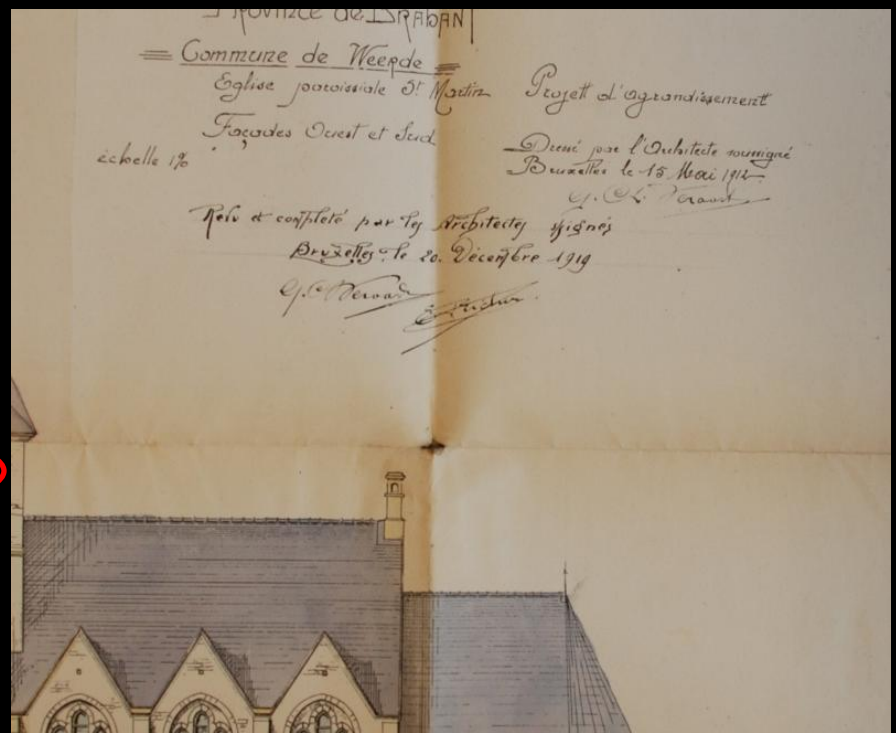 Province de Brabant
Commune de Weerde
Eglise paroissiale St Martin
Projett d'agrandissement
Façades Ouest et Sud
échelle 1%
Dressé par l'Architecte soussigné
Bruxelles le 15 Mai 1912
et complété par les Architectes
Bruxelles le 20. Décembre 1919